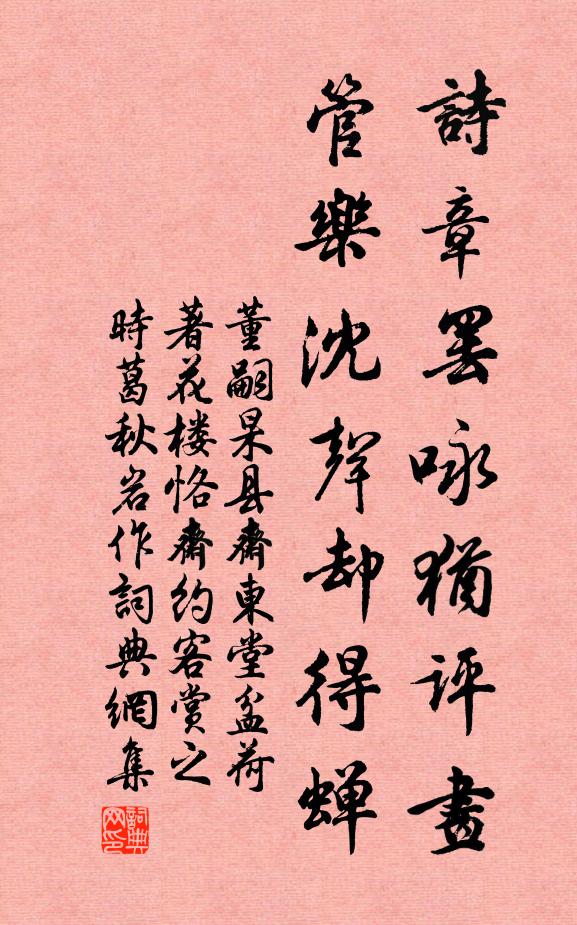 詩章罢咏猶评畫
管樂沈聲却得蝉
董嗣杲县齋東堂盆荷
著花楼恪齋约客赏之
時葛秋岩作詞典網集
詞典网印